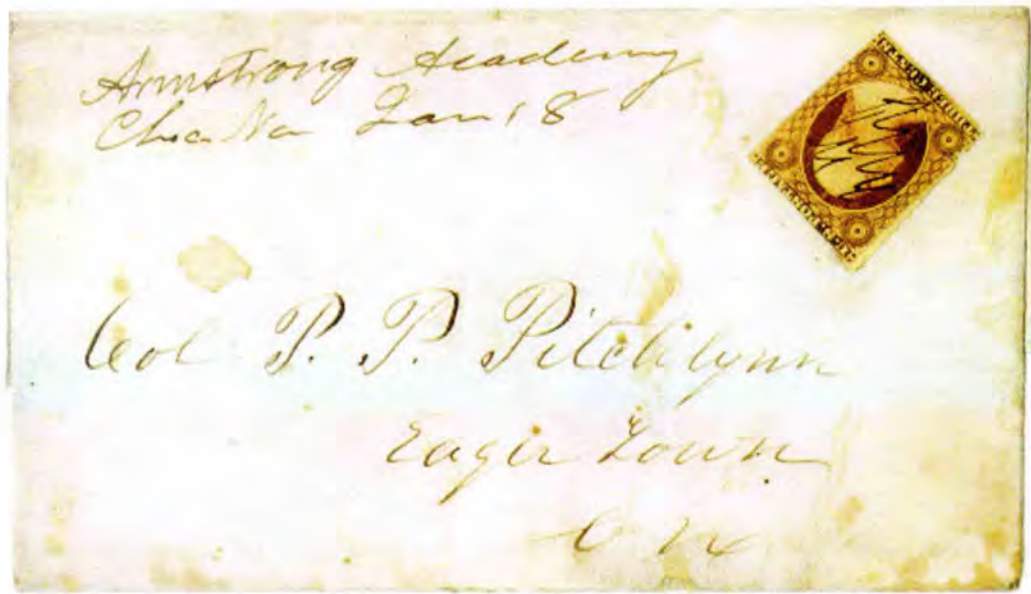 Armstrong Academy
Choc. Na Jan 18
Col P. P. Pitchlynn
Eagle Town
C N